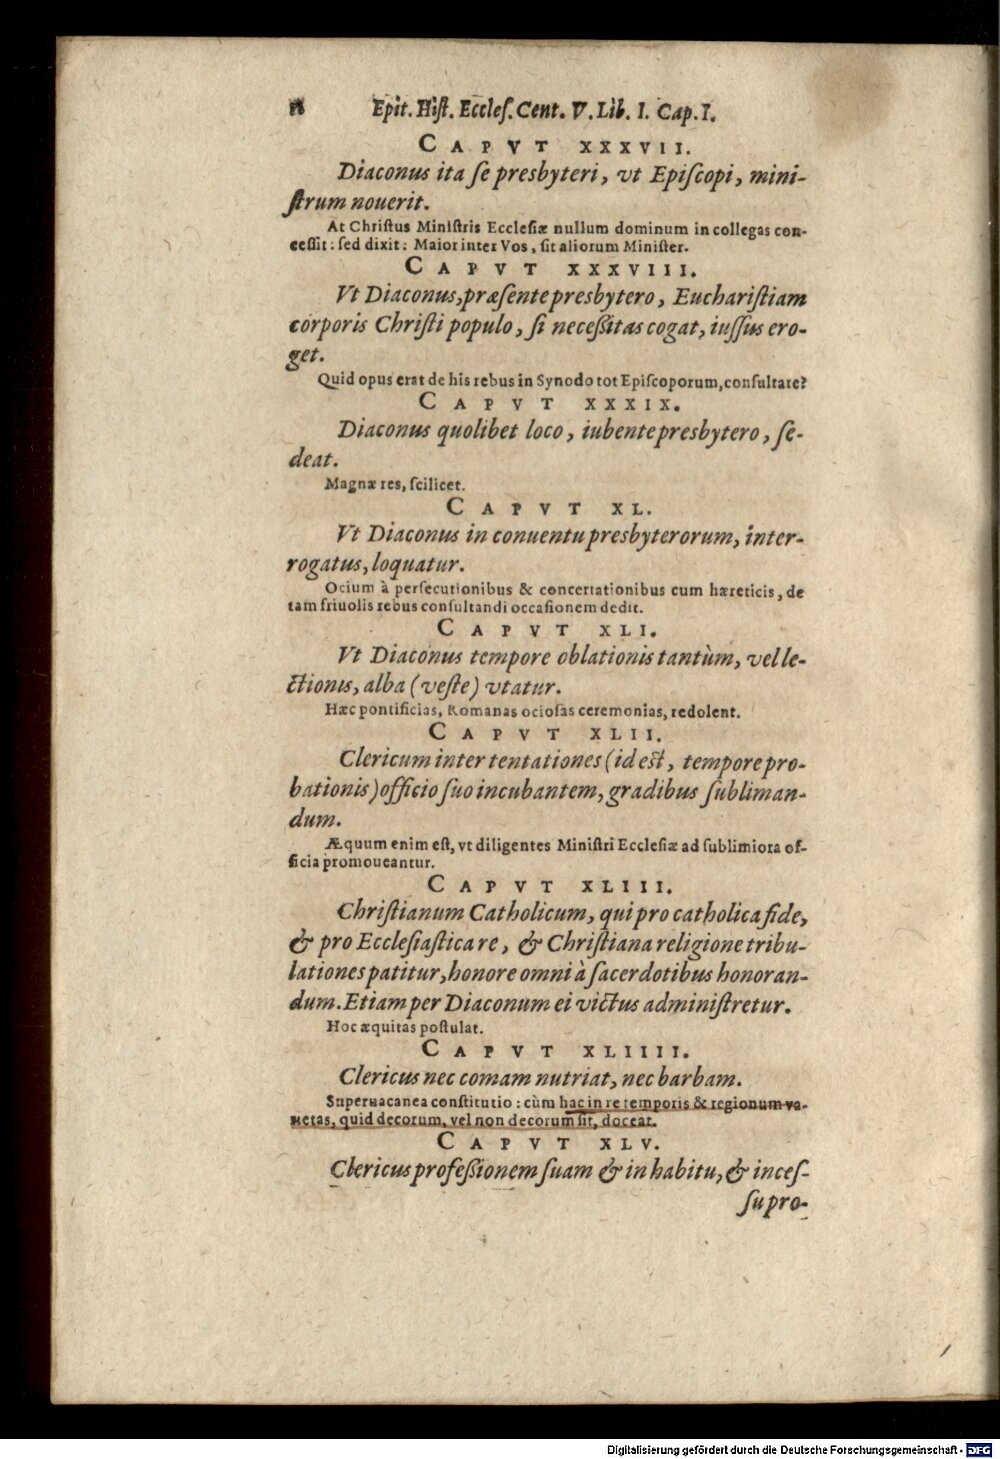 Epit. Hiſt. Eccleſ. Cent. V. Lib. I. Cap. I.
CAPVT XXXVII.
Diaconus ita ſe presbyteri, vt Epiſcopi, mini-
ſtrum nouerit.
At Chriſtus Miniſtris Eccleſiæ nullum dominum in collegas con-
ceſſit: ſed dixit: Maior inter Vos, ſit aliorum Miniſter.
CAPVT XXXVIII.
Vt Diaconus, præſente presbytero, Euchariſtiam
corporis Chriſti populo, ſi neceßitas cogat, iuſſus ero-
get.
Quid opus erat de his rebus in Synodo tot Epiſcoporum, conſultare?
CAPVT XXXIX.
Diaconus quolibet loco, iubente presbytero, ſe-
deat.
Magnæ res, ſcilicet.
CAPVT XL.
Vt Diaconus in conuentu presbyterorum, inter-
rogatus, loquatur.
Ocium à perſecutionibus & concertationibus cum hæreticis, de
tam friuolis rebus conſultandi occaſionem dedit.
CAPVT XLI.
Vt Diaconus tempore oblationis tantùm, vel le-
ctionis, alba (veſte) vtatur.
Hæc pontificias, Romanas ocioſas ceremonias, redolent.
CAPVT XLII.
Clericum inter tentationes (id eſt, tempore pro-
bationis) officio ſuo incubantem, gradibus ſubliman-
dum.
Æquum enim eſt, vt diligentes Miniſtri Eccleſiæ ad ſublimiora of-
ficia promoueantur.
CAPVT XLIII.
Chriſtianum Catholicum, qui pro catholica fide,
& pro Eccleſiaſtica re, & Chriſtiana religione tribu-
lationes patitur, honore omni à ſacerdotibus honoran-
dum. Etiam per Diaconum ei victus adminiſtretur.
Hoc æquitas poſtulat.
CAPVT XLIIII.
Clericus nec comam nutriat, nec barbam.
Superuacanea conſtitutio: cùm hac in re temporis & regionum va-
rietas, quid decorum, vel non decorum ſit, doceat.
CAPVT XLV.
Clericus profeßionem ſuam & in habitu, & inceſ-
ſu pro-
Digitalisierung gefördert durch die Deutsche Forschungsgemeinschaft - DFG